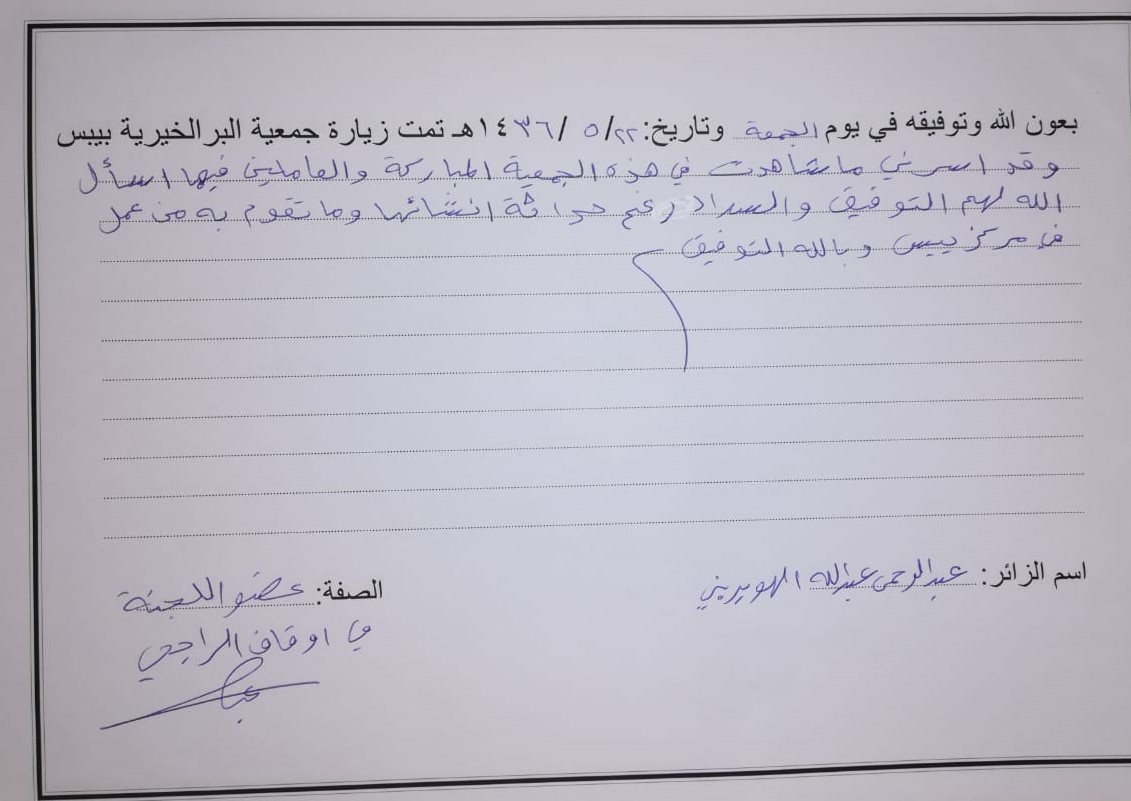 بعون الله وتوفيقه في يوم الجمعة وتاريخ: ٢٢/ ٥ /١٤٣٦هـ تمت زيارة جمعية البر الخيرية بيبس
وقد اسرني ما شاهدت في هذه الجمعية المباركة والعاملين فيها اسأل
الله لهم التوفيق والسداد رغم حداثة انشائها وما تقوم به من عمل
في مركز يبس وبالله التوفيق
اسم الزائر: عبدالرحمن عبدالله الهويريني
الصفة: عضو اللجنة
في اوقاف الراجحي